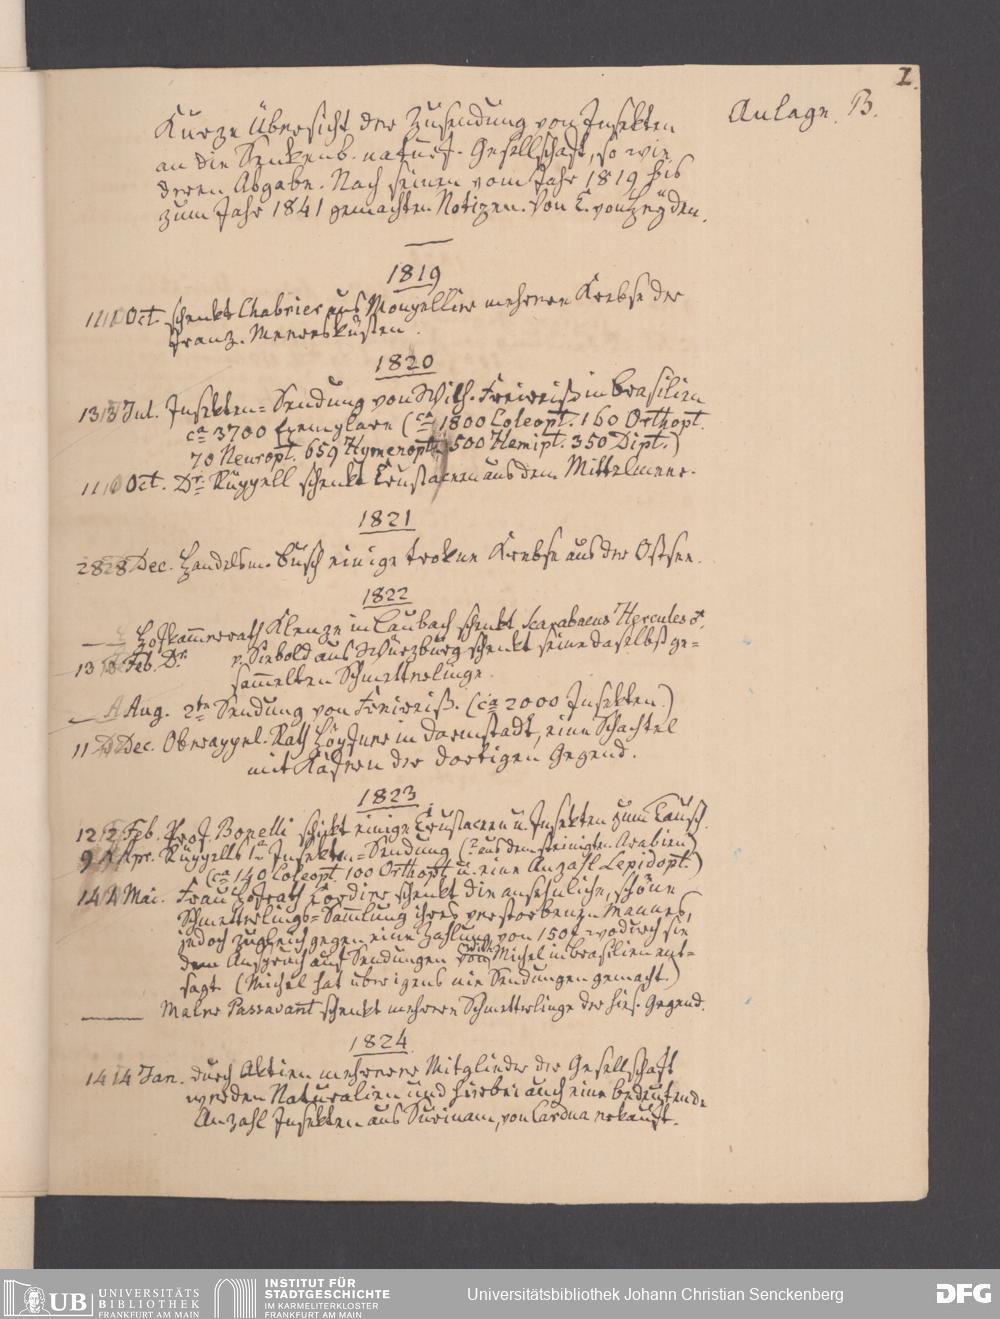 1.
Anlage. B.
Kurze Übersicht der Zusendung von Insekten
an die Senkenb. naturf. Gesellschaft, so wie
deren Abgabe. Nach seinen vom Jahr 1819 bis
zum Jahr 1841 gemachten Notizen. Von C. von Heyden.
1819
11 Oct. schenkt Chabrier aus Monpellier mehrere Krebse der
franz. Meeresküsten.
1820
13 Jul. Insekten-Sendung von Wilh. Freireiß in Brasilien
ca 3700 Exemplare (ca 1800 Coleopt. 160 Orthopt.
70 Neuropt. 659 Hymenopt. 500 Hemipt. 350 Dipt.)
11 Oct. Dr. Rüppell schenkt Crustaceen aus dem Mittelmeer.
1821
28 Dec. Handelsm. Busch einige trokne Krebse aus der Ostsee.
1822
Hofkammerrath Klenze in Laubach schenkt Scarabaeus Hercules ♂.
13 Feb. Dr. v. Siebold aus Würzburg schenkt seine daselbst ge=
sammelten Schmetterlinge.
Aug. 2te Sendung von Freireiß. (ca 2000 Insekten.)
11 Dec. Oberappel. Rath Höpfner in Darmstadt, eine Schachtel
mit Käfern der dortigen Gegend.
1823.
12 Feb. Prof. Bonelli schikt einige Crustaceen u. Insekten zum Tausch.
9 Apr. Rüppells 1te Insekten=Sendung (? aus dem steinigten Arabien)
(ca 140 Coleopt. 100 Orthopt. u. eine Anzahl Lepidopt.)
14 Mai. Frau Hofrath schenkt die ansehnliche, schöne
Schmetterlings=Sammlung ihres verstorbenen Mannes,
jedoch zugleich gegen eine Zahlung von 150 f. wodurch sie
dem Anspruch auf Sendungen von Michel in Brasilien ent=
sagt. (Michel hat übrigens nie Sendungen gemacht.)
Maler Passavant schenkt mehrere Schmetterlinge der hies. Gegend.
1824
14 Jan. durch Aktien mehrerer Mitglieder der Gesellschaft
werden Naturalien und hierbei auch eine bedeutende
Anzahl Insekten aus Surinam, von erkauft.
UB UNIVERSITÄTS
BIBLIOTHEK
FRANKFURT AM MAIN
INSTITUT FÜR
STADTGESCHICHTE
IM KARMELITERKLOSTER
FRANKFURT AM MAIN
Universitätsbibliothek Johann Christian Senckenberg
DFG